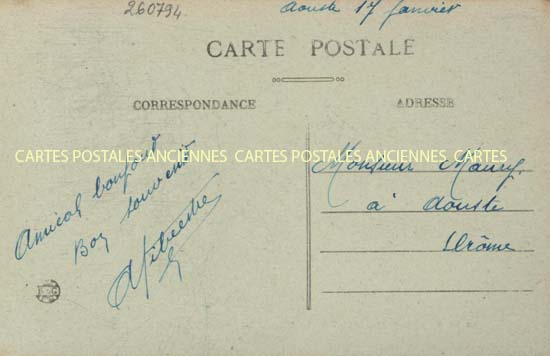 260794
Aouste 17 Janvier
CARTE POSTALE
CORRESPONDANCE
ADRESSE
CARTES POSTALES ANCIENNES CARTES POSTALES ANCIENNES
Amical bonjour
Bon souvenir
Monsieur Maury
à Aouste
Drôme